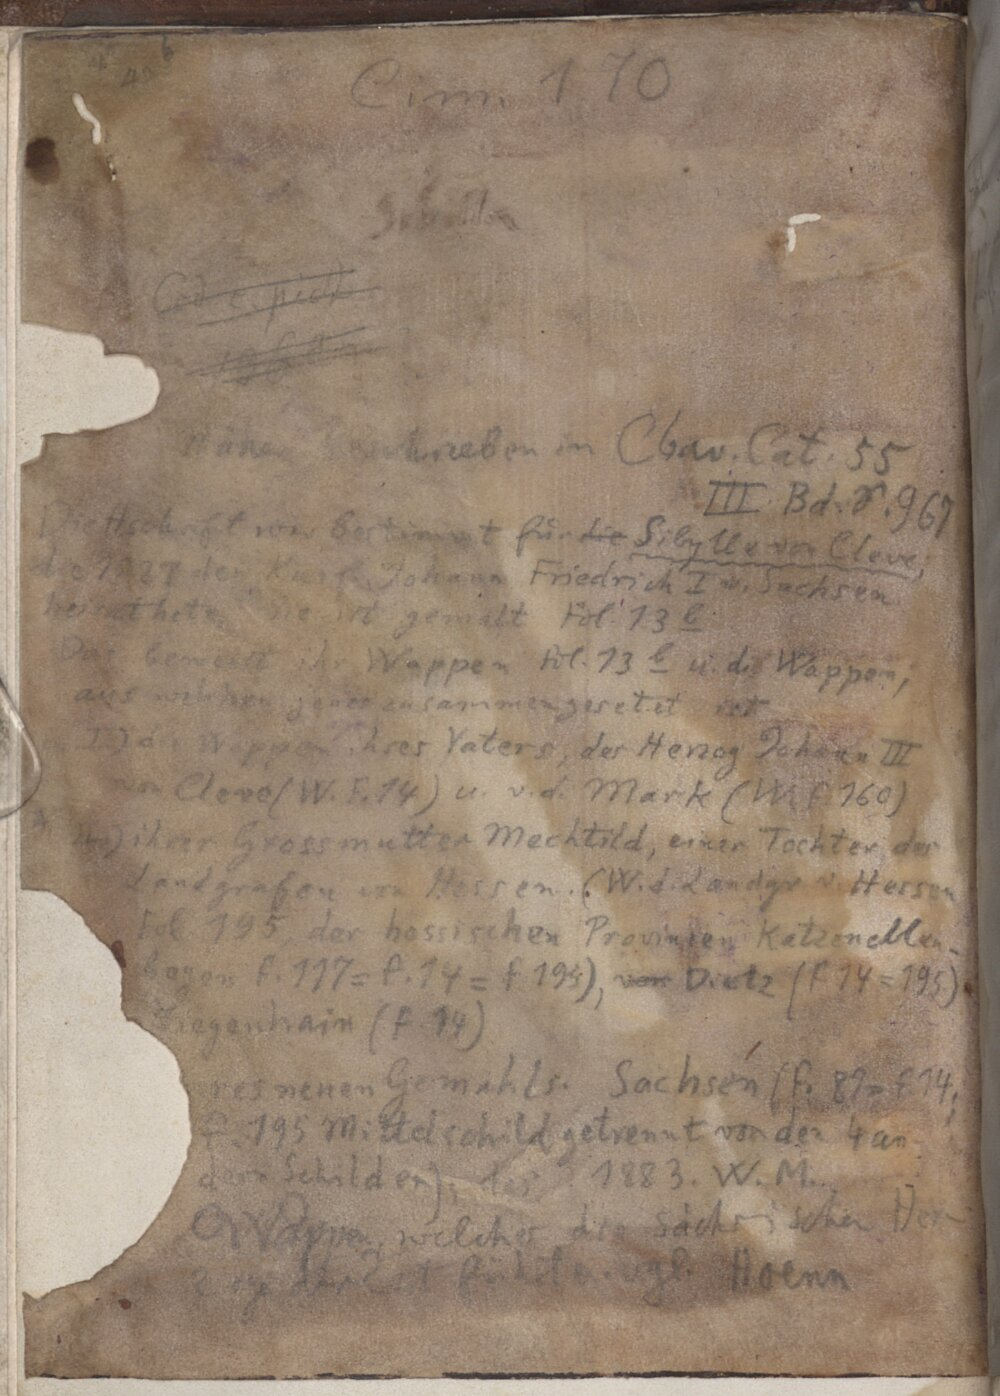 Cim. 170
Cod. c. pict.
beschrieben in Cbav. Cat. 55
III Bd. S. 967
Die Hschrift war bestimmt für die Sibylle von Cleve,
die 1527 den Kurf. Johann Friedrich I v. Sachsen
heirathete. Sie ist gemalt Fol. 13 b
Das beweist ihr Wappen Fol. 13 b u. die Wappen,
aus welchen jenes zusammengesetzt ist
I.) die Wappen ihres Vaters, des Herzog Johann III
von Cleve (W. F. 14) u. v. d. Mark (W. f. 160)
ihrer Grossmutter Mechtild, einer Tochter des
Landgrafen von Hessen. (W. d. Landgr. v. Hessen
Fol. 195, der hessischen Provinzen Katzenellen-
bogen f. 117 = f. 14 = f 195), von Dietz (f 14 = 195)
Ziegenhain (f. 14)
res neuen Gemahls. Sachsen (f. 89 = f. 14,
f. 195 Mittelschild getrennt von den 4 an-
dern Schilden), 1883. W. M.
Wappen, welches die sächsischen Her-
führten. vgl. Hoenn